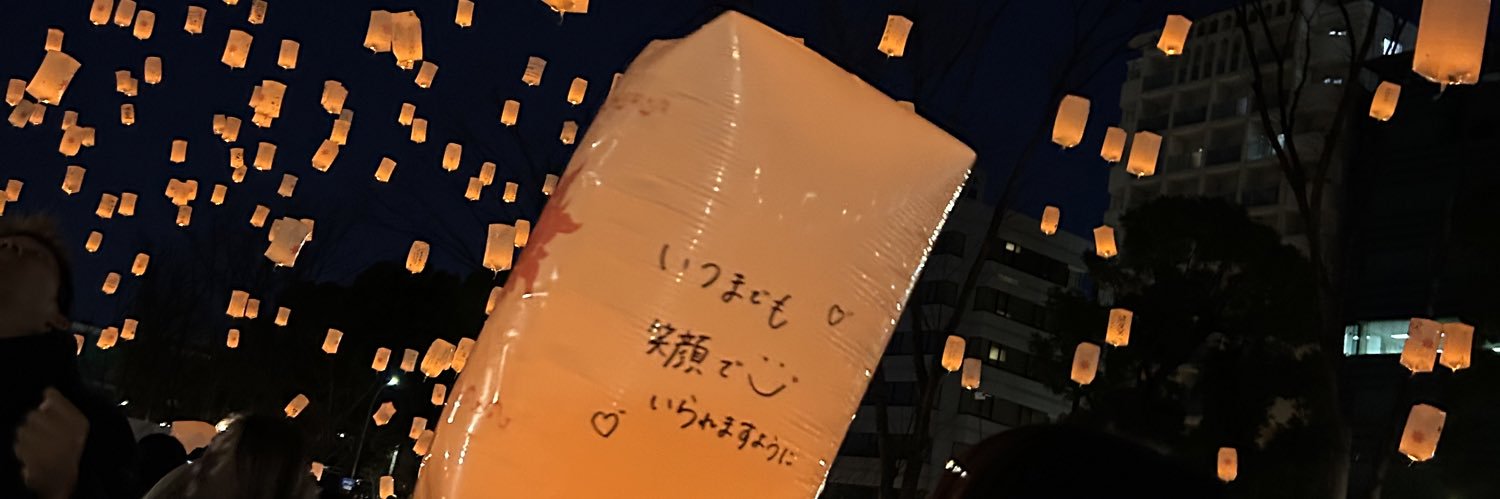 いつまでも♡
笑顔で
いられますように